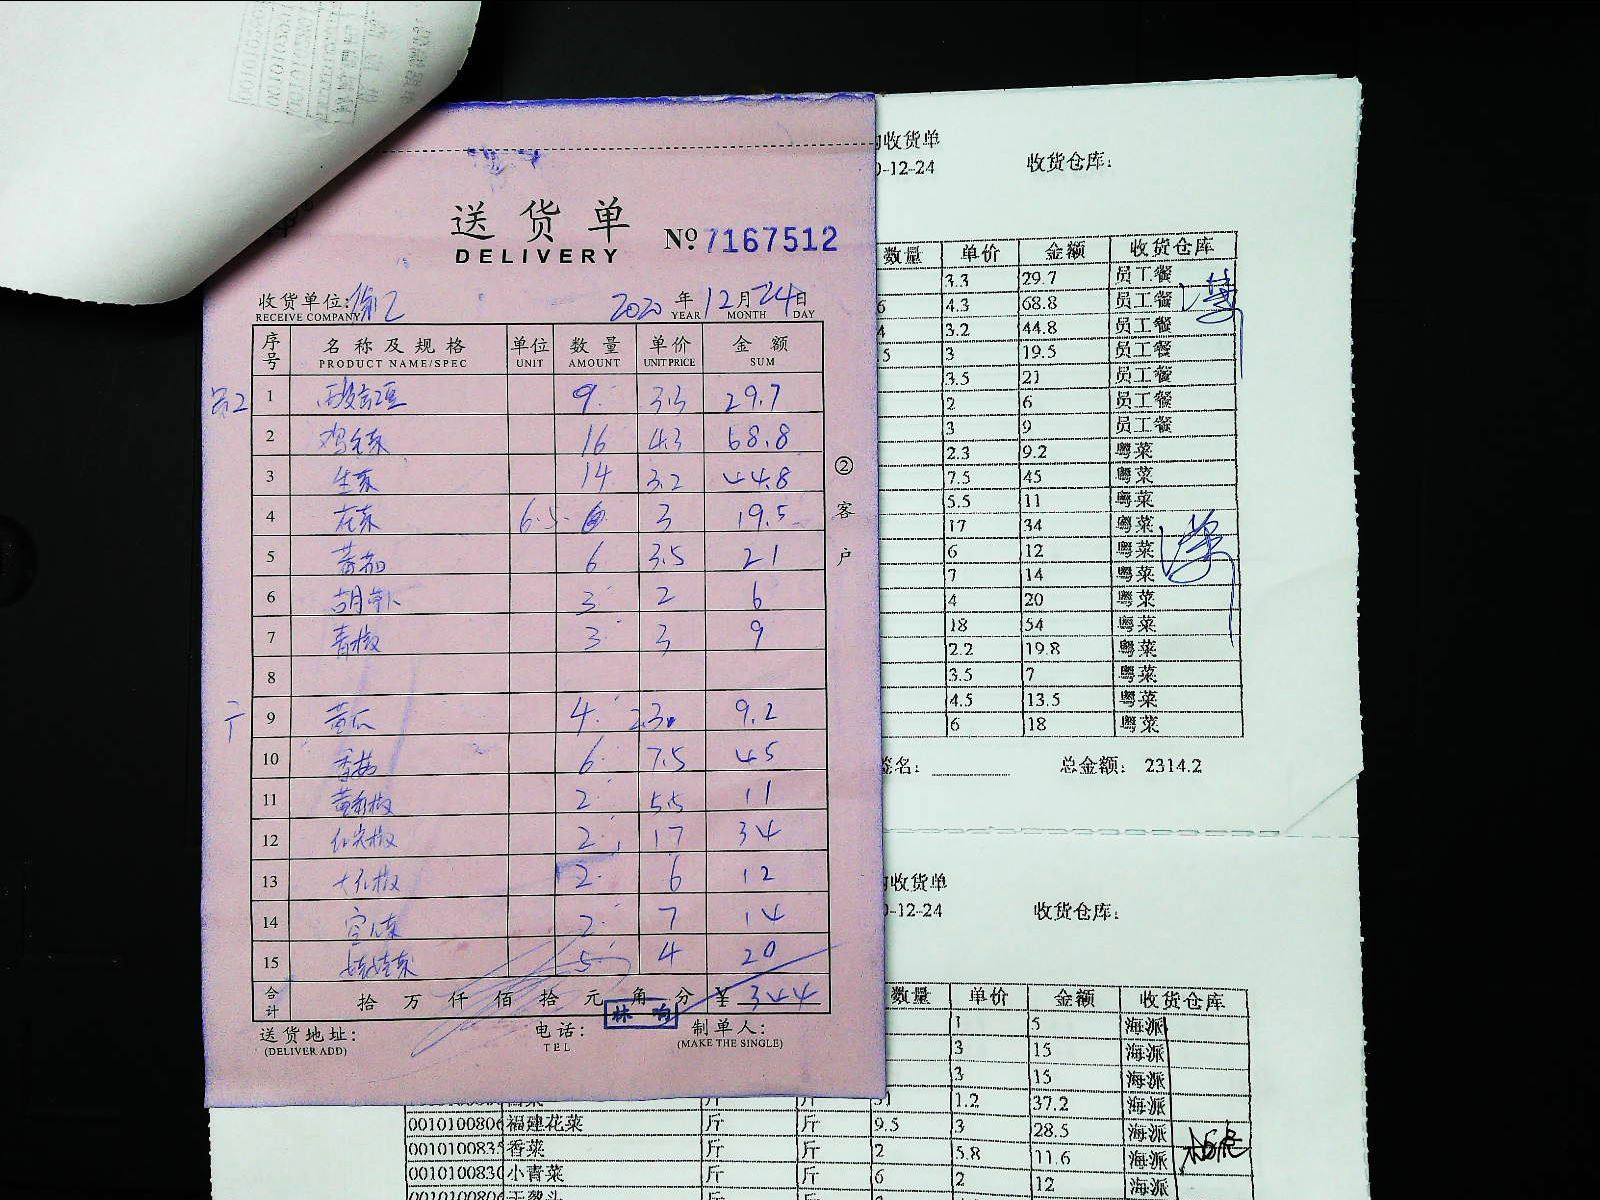 送货单
DELIVERY
№ 7167512
收货单位:
RECEIVE COMPANY
2020 年 12 月 24 日
YEAR MONTH DAY
序号 名称及规格 单位 数量 单价 金额
PRODUCT NAME/SPEC UNIT AMOUNT UNIT PRICE SUM
1 9 3.3 29.7
2 16 4.3 68.8
3 生菜 14 3.2 44.8
4 6.5 3 19.5
5 6 3.5 21
6 胡萝卜 3 2 6
7 青椒 3 3 9
8
9 黄瓜 4 2.3 9.2
10 香菇 6 7.5 45
11 2 5.5 11
12 2 17 34
13 2 6 12
14 2 7 14
15 娃娃菜 5 4 20
合计 拾 万 仟 佰 拾 元 角 分 ¥ 344
送货地址:
(DELIVER ADD)
电话:
TEL
制单人:
(MAKE THE SINGLE)
② 客户
收货单
-12-24 收货仓库:
数量 单价 金额 收货仓库
3.3 29.7 员工餐
6 4.3 68.8 员工餐
4 3.2 44.8 员工餐
5 3 19.5 员工餐
3.5 21 员工餐
2 6 员工餐
3 9 员工餐
2.3 9.2 粤菜
7.5 45 粤菜
5.5 11 粤菜
17 34 粤菜
6 12 粤菜
7 14 粤菜
4 20 粤菜
18 54 粤菜
2.2 19.8 粤菜
3.5 7 粤菜
4.5 13.5 粤菜
6 18 粤菜
签名: 总金额: 2314.2
收货单
-12-24 收货仓库:
数量 单价 金额 收货仓库
1 5 海派
3 15 海派
3 15 海派
1.2 37.2 海派
0010100806 福建花菜 斤 斤 9.5 3 28.5 海派
001010083 香菜 斤 斤 2 5.8 11.6 海派
001010083 小青菜 斤 斤 6 2 12 海派